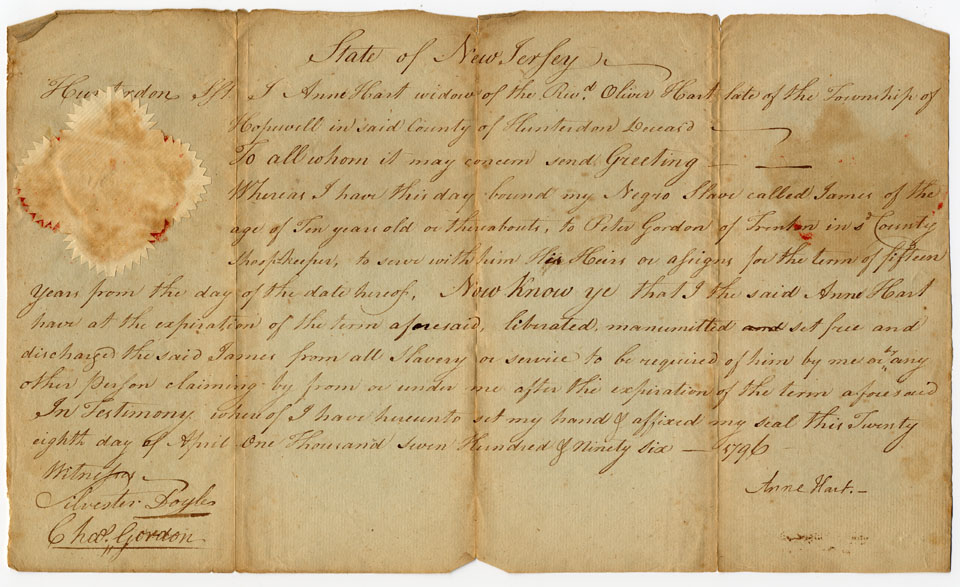 State of New Jersey
Hunterdon Sst I Anne Hart widow of the Revd. Oliver Hart late of the Township of
Hopewell in said County of Hunterdon Deceasd
To all whom it may concern send Greeting
Whereas I have this day bound my Negro Slave called James of the
age of Ten years old or thereabouts, to Peter Gordon of Trenton in sd County
Shoopkeeper, to serve with him His Heirs or assigns for the term of fifteen
Years from the day of the date hereof, Now Know ye that I the said Anne Hart
have at the expiration of the term aforesaid, liberated, manumitted and set free and
discharge the said James from all Slavery or service to be required of him by me or any
other person claiming by from or under me after the expiration of the term aforesaid
In Testimony whereof I have hereunto set my hand & affixed my seal this Twenty
eighth day of April One Thousand Seven Hundred & Ninety Six — 1796
Witness
Silvester Doyle
Chas. Gordon
Anne Hart.—